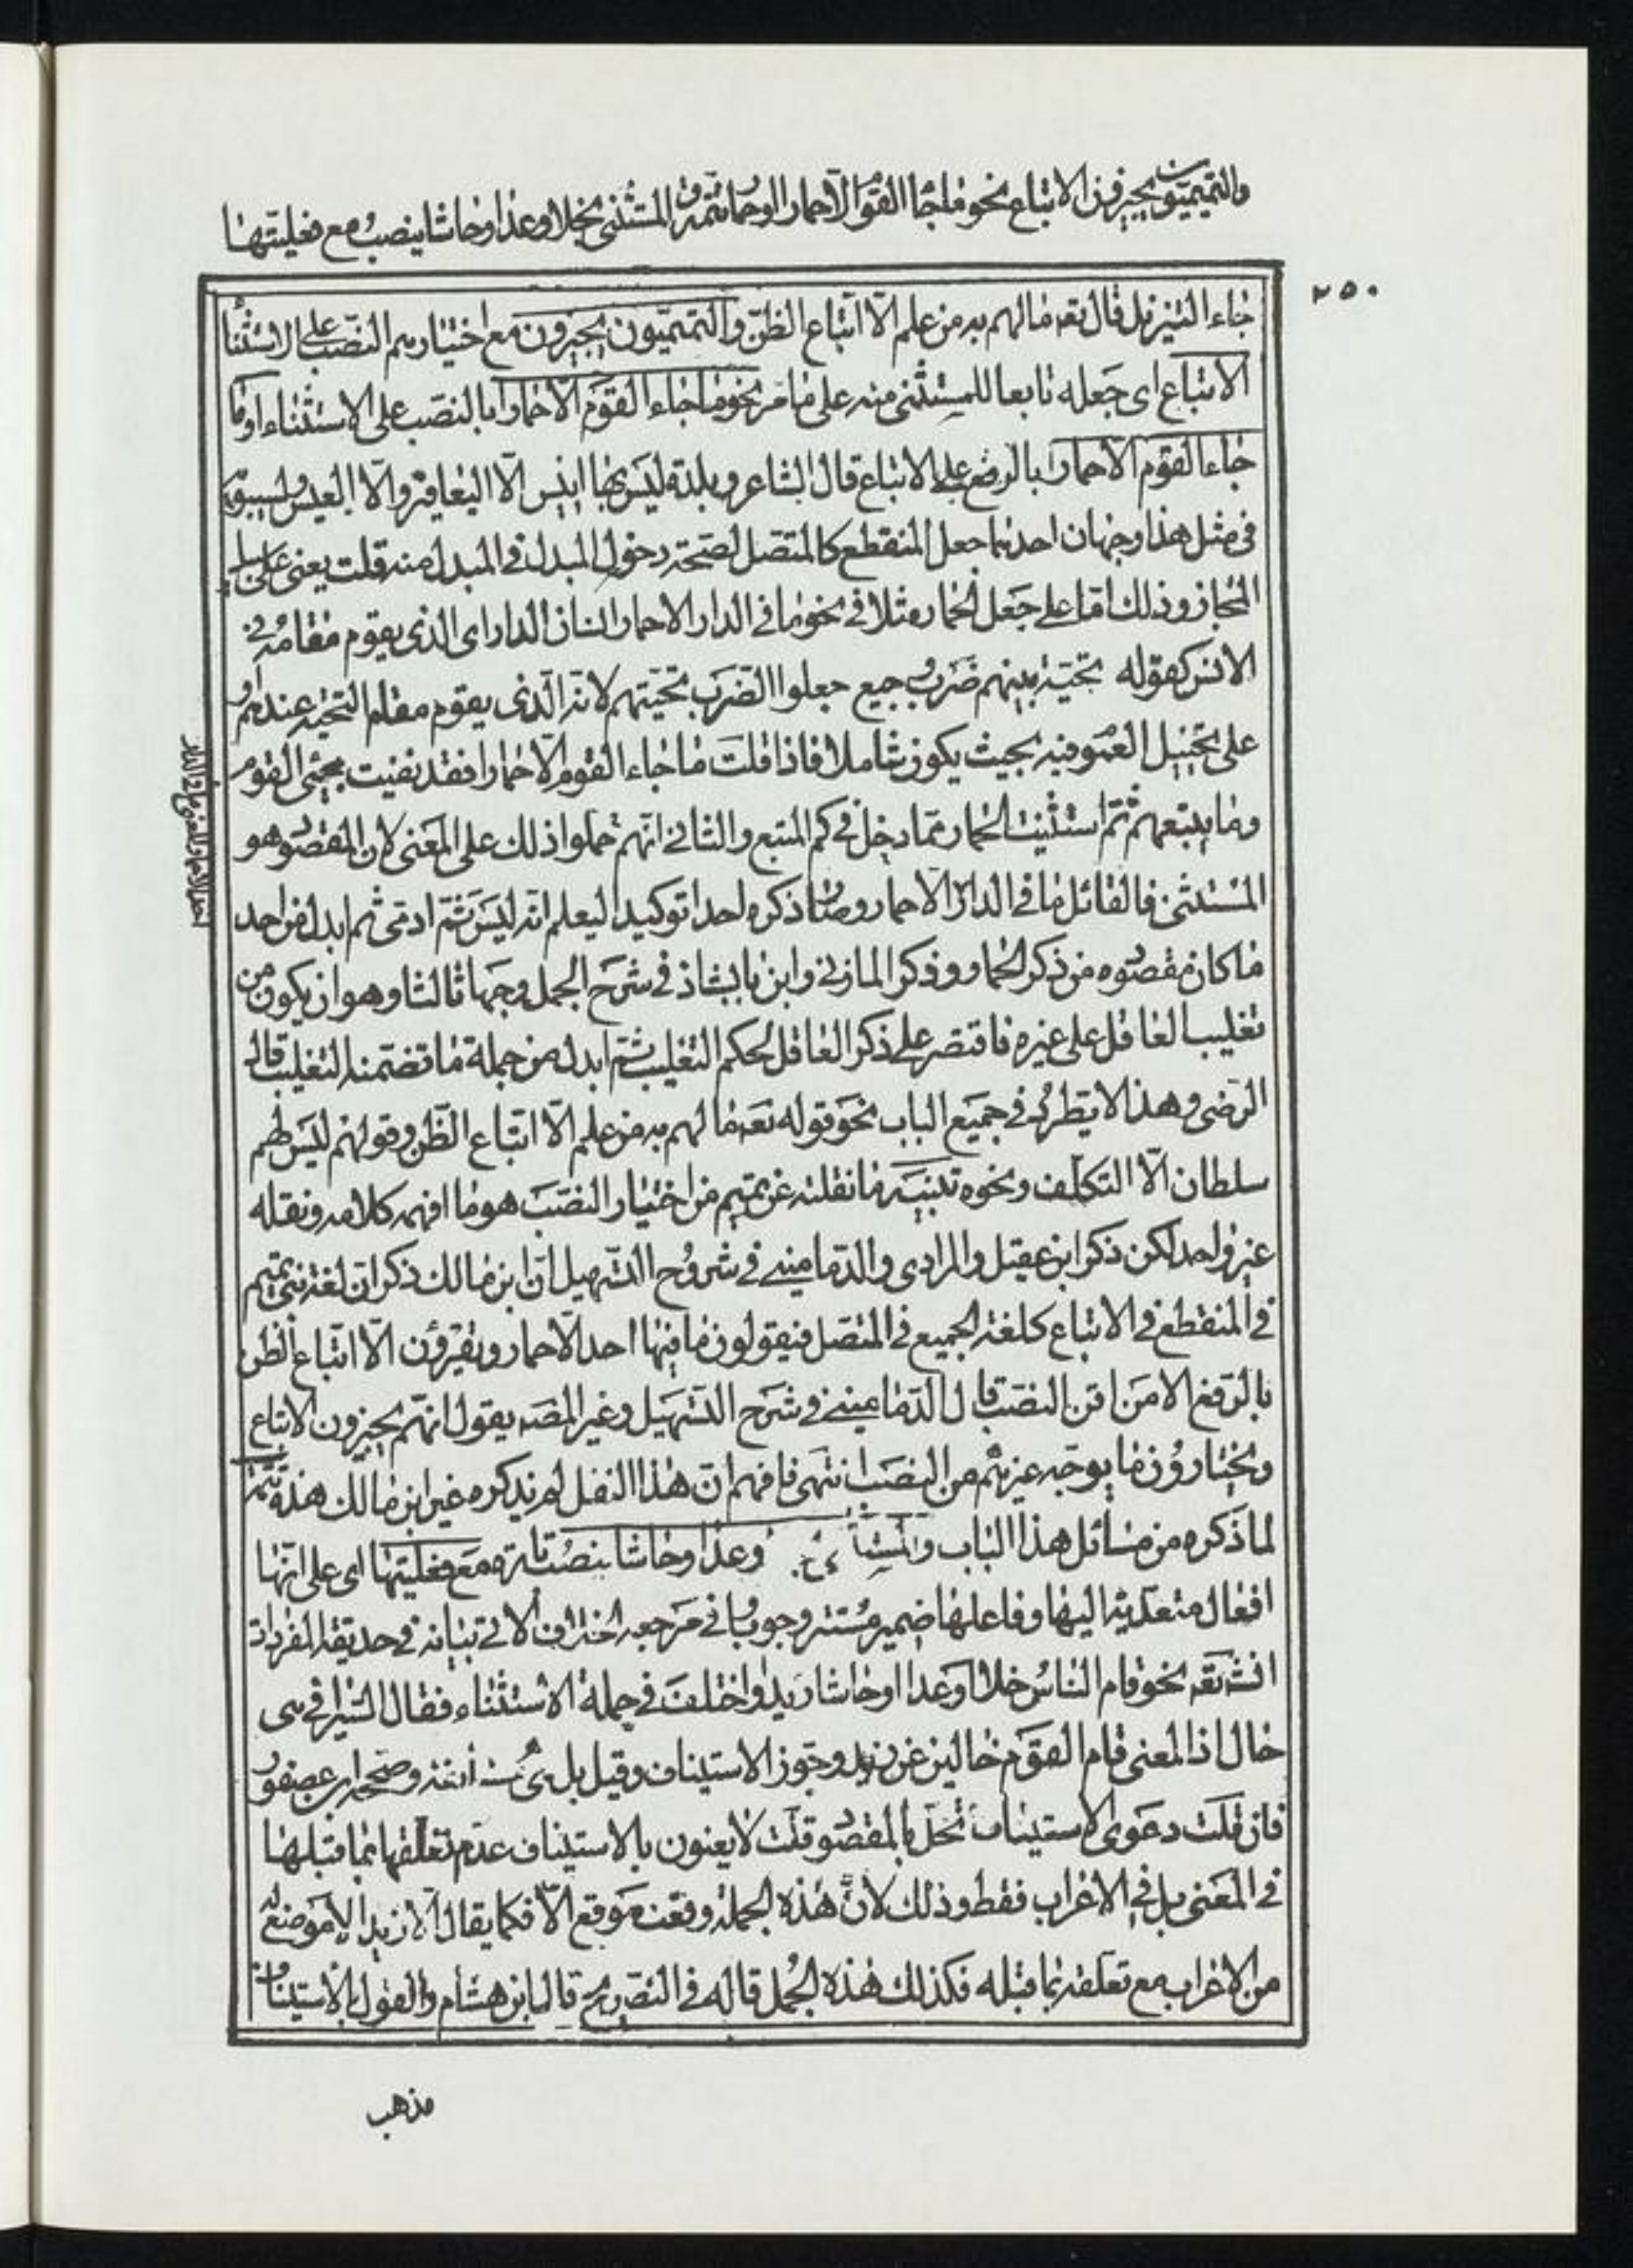 والتميميون يجيزون الاتباع نحو ما جاء القوم الا حمارا او حمار تتمة المستثنى بخلا وعدا وحاشا ينصب مع فعليتها
٢٥٠
جاء التنزيل قال تعه ما لهم به من علم الّا اتباع الظنّ والتميميّون يجيزون مع اختيارهم النصب على الاستثناء
الاتباع اى جعله تابعا للمستثنى منه على ما مر نحو ما جاء القوم الّا حمارا بالنصب على الاستثناء او ما
جاء القوم الّا حمار بالرفع على الاتباع قال الشاعر وبلدة ليس بها انيس الّا اليعافير والّا العيس ولسيبويه
فى مثل هذا وجهان احدهما جعل المنقطع كالمتصل لصحّة دخول المبدل فى المبدل منه قلت يعنى على سبيل
المجاز وذلك امّا على جعل الحمار مثلا فى نحو ما فى الدار الا حمار انسان الدار اى الذى يقوم مقامه فى
الانس كقوله تحيّة بينهم ضرب وجيع جعلوا الضرب تحيّتهم لانه الّذى يقوم مقام التحيّة عندهم او
على تخييل العموم فيه بحيث يكون شاملا فاذا قلت ما جاء القوم الّا حمارا فقد نفيت مجيئ القوم
وما يتبعهم ثمّ استثنيت الحمار ممّا دخل فى كم المتبع والثانى انّهم حملوا ذلك على المعنى لان المقصود هو
المستثنى فالقائل ما فى الدار الّا حمار وصار ذكره احدا توكيدا ليعلم انّه ليس ثَمّ ادمىّ ثم ابدل من احد
ما كان مقصوده من ذكر الحمار وذكر المازنى وابن بابشاذ فى شرح الجمل وجها ثالثا وهو ان يكون من
تغليب العاقل على غيره فاقتصر على ذكر العاقل لحكم التغليب ثم ابدل من جملة ما تضمنه التغليب قال
الرضى وهذا لا يطرد فى جميع الباب نحو قوله تعه ما لهم به من علم الّا اتباع الظن وقولهم ليس لهم
سلطان الّا التكلف ونحوه تنبيه ما نقلته عن تميم من اختيار النصب هو ما افهمه كلامه ونقله
غير واحد لكن ذكر ابن عقيل والمرادى والدّمامينى فى شروح التسهيل انّ ابن مالك ذكر ان لغة بنى تميم
فى المنقطع فى الاتباع كلغة الجميع فى المتصل فيقولون ما فيها احد الّا حمار ويقرؤن الّا اتباع الظن
بالرفع الا من لقن النصب قال الدمامينى فى شرح التسهيل وغير المصه يقول انهّم يجيزون الاتباع
ويختارون ما يوجبه غيرهم من النصب انتهى فافهم انّ هذا النقل لم يذكره غير ابن مالك هذه تتمّة
لما ذكره من مسائل هذا الباب والمستثنى وعدا وحاشا ينصب تارة مع فعليتها اى على انّها
افعال متعدّية اليها وفاعلها ضمير مستتر وجوبا فى مرجعه اختلاف الاتى بيانه فى حديقة المفردات
انشه تعه نحو قام الناس خلا او عدا او حاشا زيدا واختلف فى جملة الاستثناء فقال السيرافى هى
حال اذ المعنى قام القوم خالين عن زيد وجوز الاستيناف وقيل بل هى مستأنفة وصححه ابن عصفور
فان قلت دعوى الاستيناف تخلّ بالمقصود قلت لا يعنون بالاستيناف عدم تعلقها بما قبلها
فى المعنى بل فى الاعراب فقط وذلك لانّ هذه الجملة وقعت موقع الّا فكما يقال الّا زيدا لا موضع له
من الاعراب مع تعلّقه بما قبله فكذلك هذه الجمل قاله فى التصريح قال ابن هشام والقول بالاستيناف
مذهب